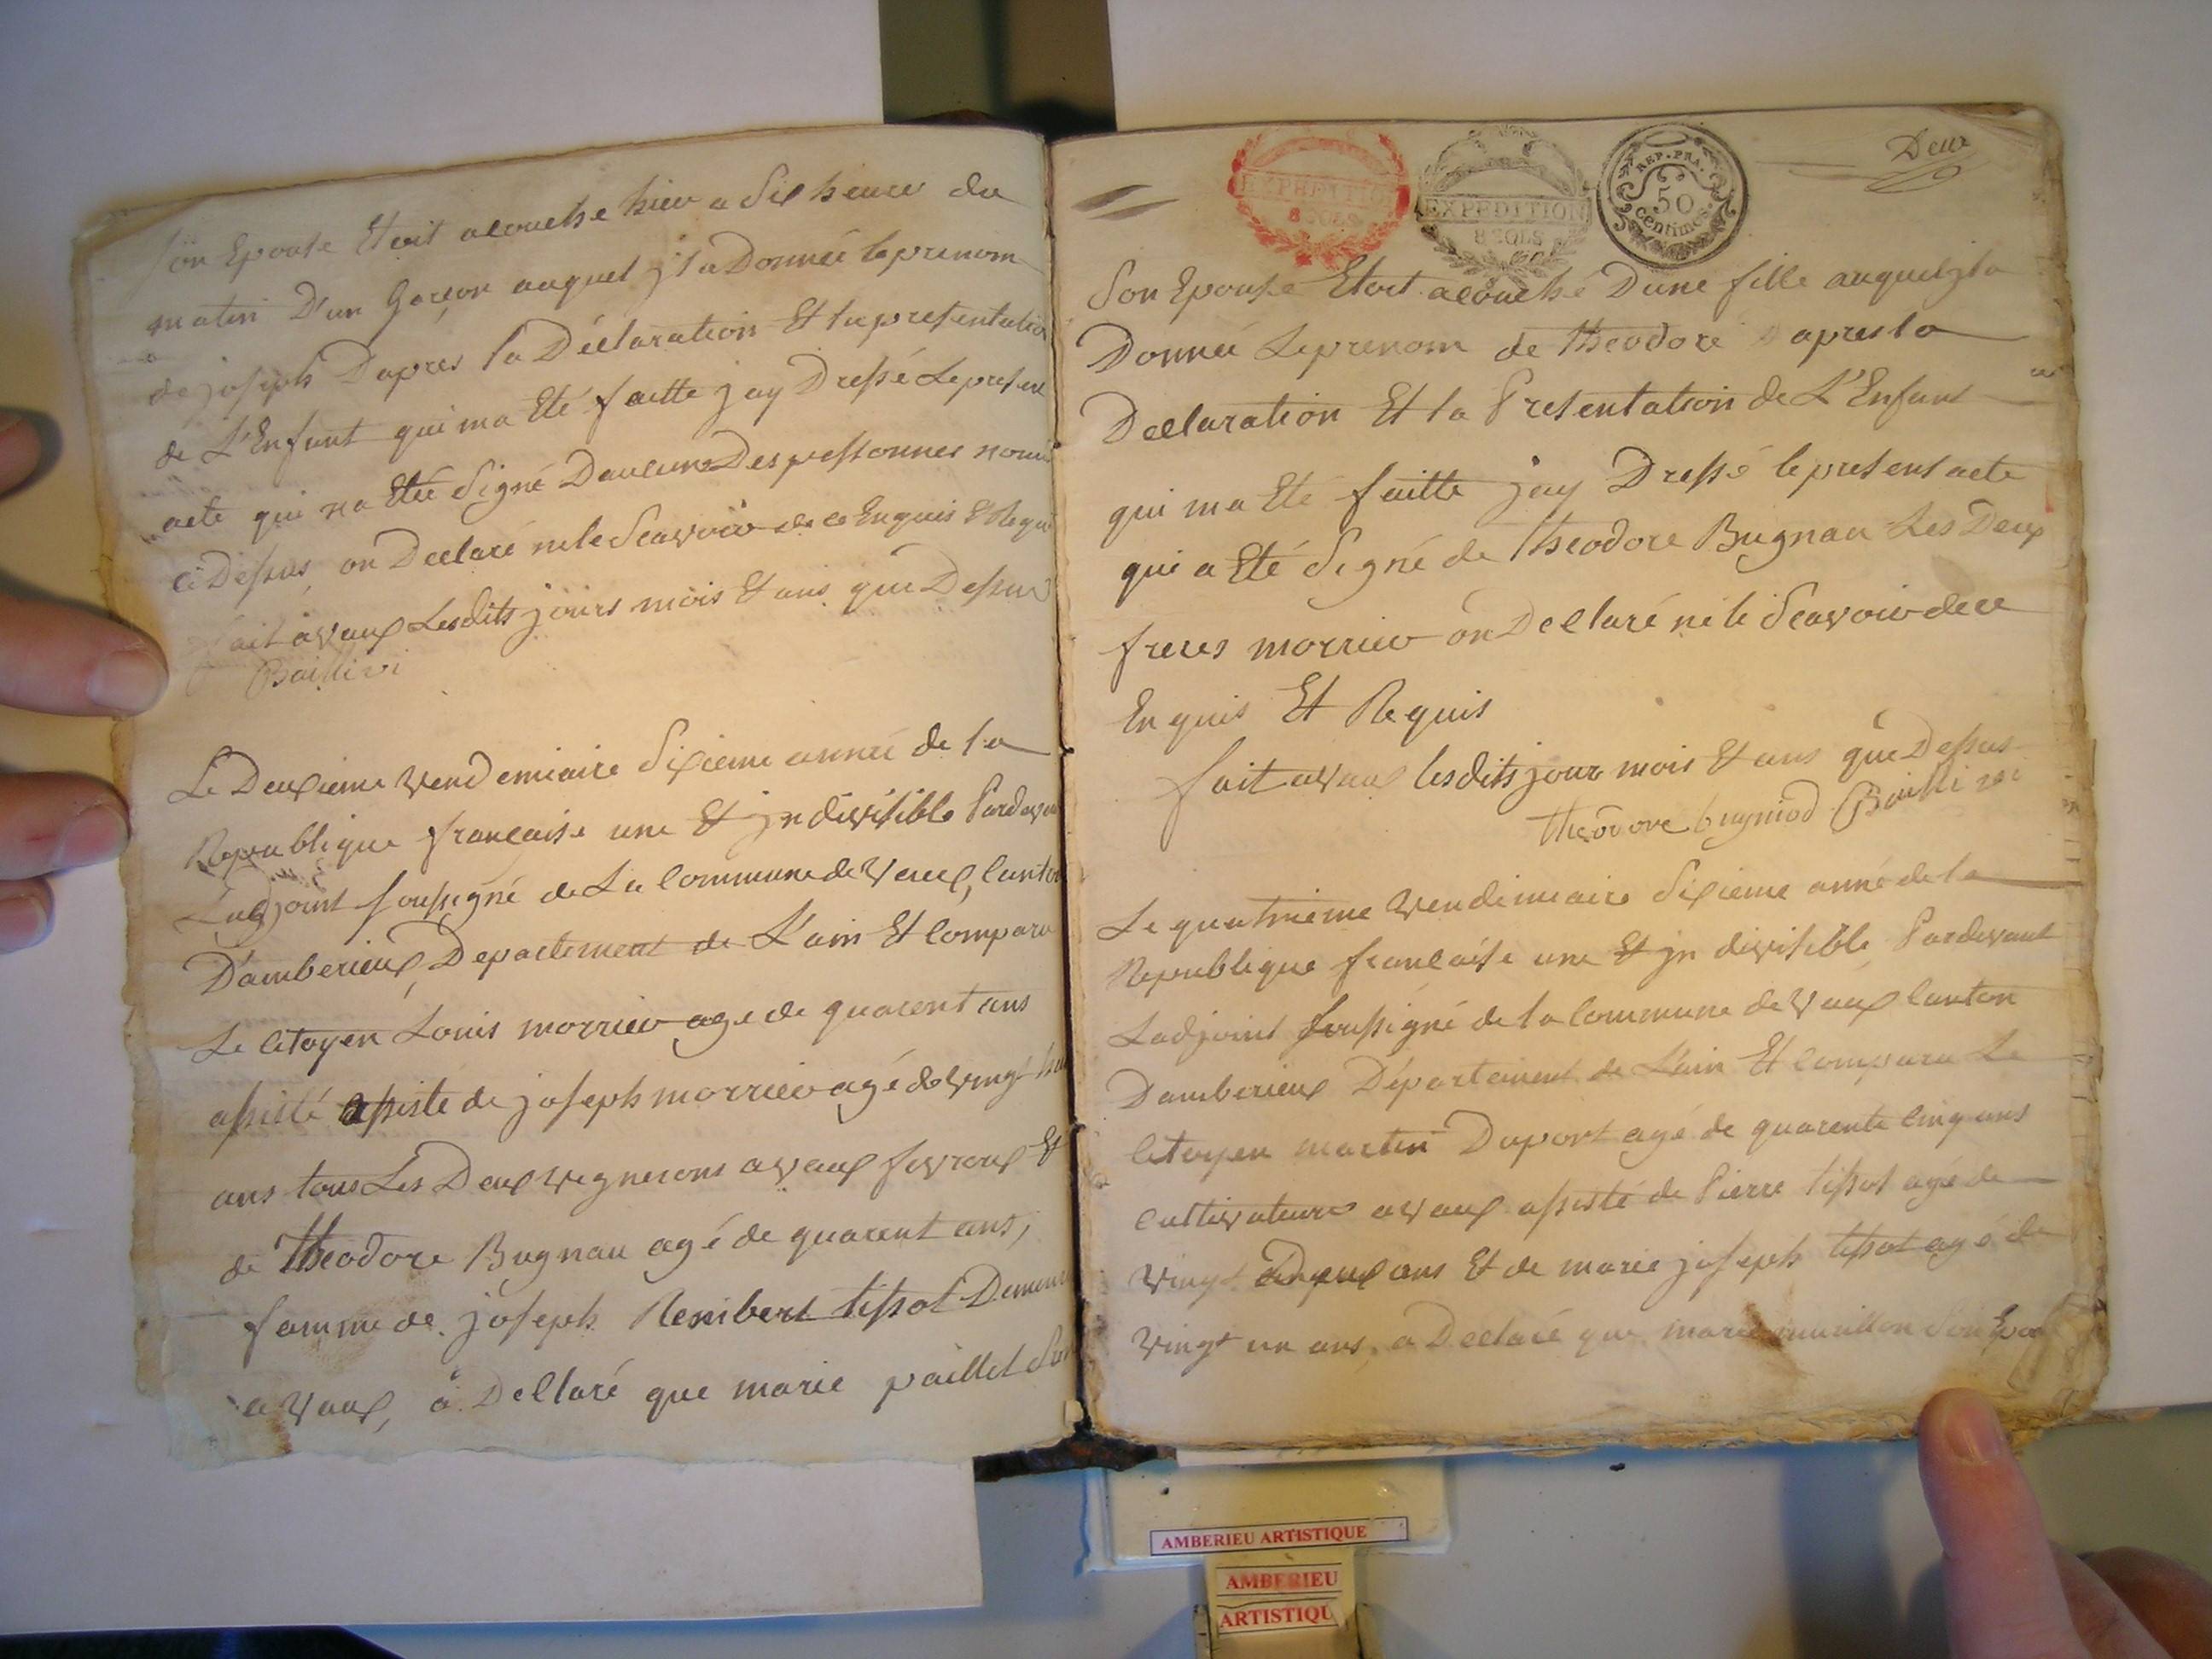 Son Epouse Etoit acouchée hier a Six heure du
matin D'un Garçon auquel jl a Donneé le prenom
de joseph Dapres la Déclaration Et la presentation
de L'Enfant qui ma Eté faitte jay Dressé Le present
acte qui na Eté Signé Daucune Des pessonnes nomé
ci Dessus, on Declaré ne le Scavoir de ce Enquis Et Requi
fait a Vaux Lesdits jours mois Et ans que Dessus
Le Deuxieme Vendemiaire Sixieme anneé de la
Republique francaise une Et jndivisible Pardevant
Ladjoint soussigné de La Commune de Vaux, Canton
D'amberieux, Departement de L'ain Et Comparu
Le Citoyen Louis morrier age de quarent ans
assisté assisté de joseph morrier agé de vingt huit
ans tous Les Deux vignerons a Vaux Et
de Theodore Bugnau agé de quarent ans,
famme de joseph Rembert tissot
a Vaux, a Declaré que marie paillet Son
Deux
EXPEDITION
8 SOLS
EXPEDITION
8 SOLS
REP. FRA.
50
centimes.
Son Epouse Etoit acouchée Dune fille auquel jl a
Donneé Le prenom de Theodore Dapres la
Declaration Et la Presentation de L'Enfant
qui ma Eté faitte jay Dressé le present acte
qui a Eté Signé de Theodore Bugnau Les Deux
freres morrier on Declaré ne le Scavoir de ce
Enquis Et Requis
fait a Vaux lesdits jour mois Et ans que Dessus
theodore bugniod
Le quatrieme Vendemiaire Sixieme anné de la
Republique francaise une Et jndivisible Pardevant
Ladjoint soussigné de la Commune de Vaux Canton
Damberieux Département de L'ain Et Comparu Le
Citoyen martin Duport agé de quarente Cinq ans
Cultivateur a Vaux assisté de Pierre tissot agé de
vingt deux ans Et de marie joseph tissot agé de
vingt un ans, a Declaré que marie Son Epou
AMBERIEU ARTISTIQUE
AMBERIEU
ARTISTIQU